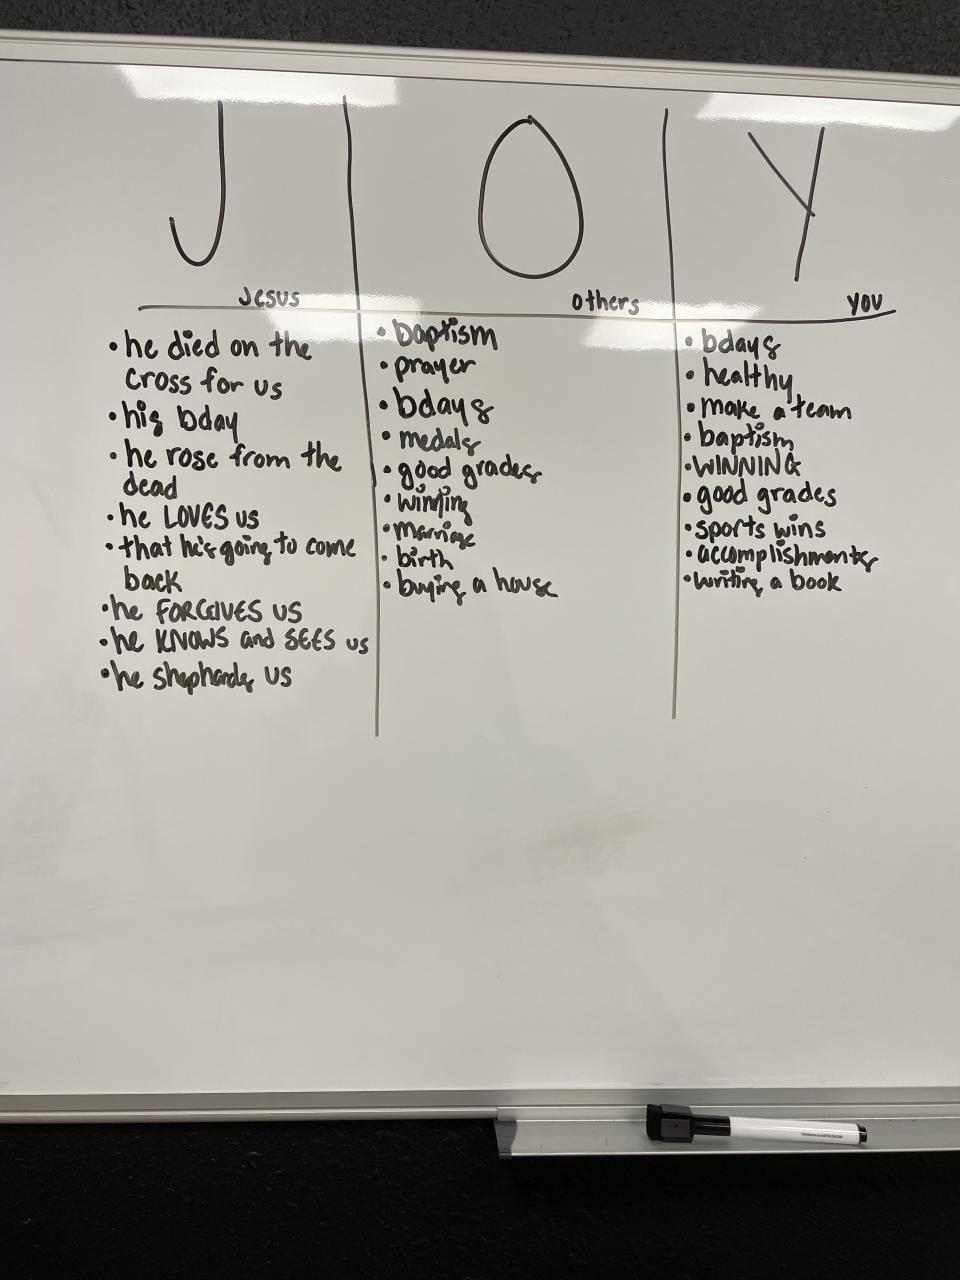 J
Jesus
• he died on the
cross for us
• his bday
• he rose from the
dead
• he LOVES us
• that he's going to come
back
• he FORGIVES US
• he KNOWS and SEES us
• he shephards US
O
others
• baptism
• prayer
• bdays
• medals
• good grades
• winning
• marriage
• birth
• buying a house
Y
you
• bdays
• healthy
• make a team
• baptism
• WINNING
• good grades
• sports wins
• accomplishments
• writing a book